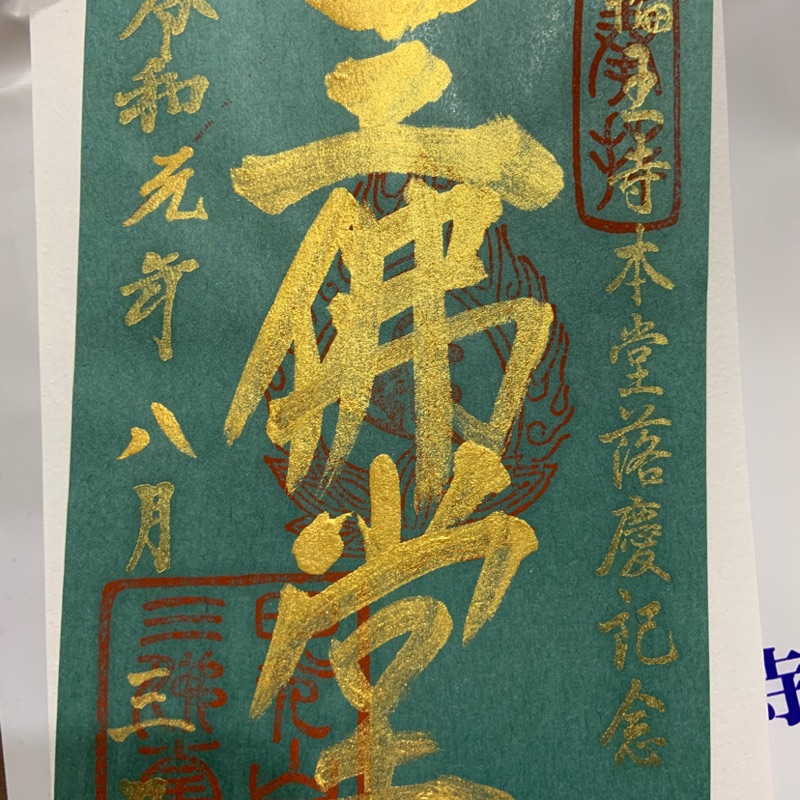 輪王寺
本堂落慶記念
三佛堂
令和元年八月三
日光山
三佛堂